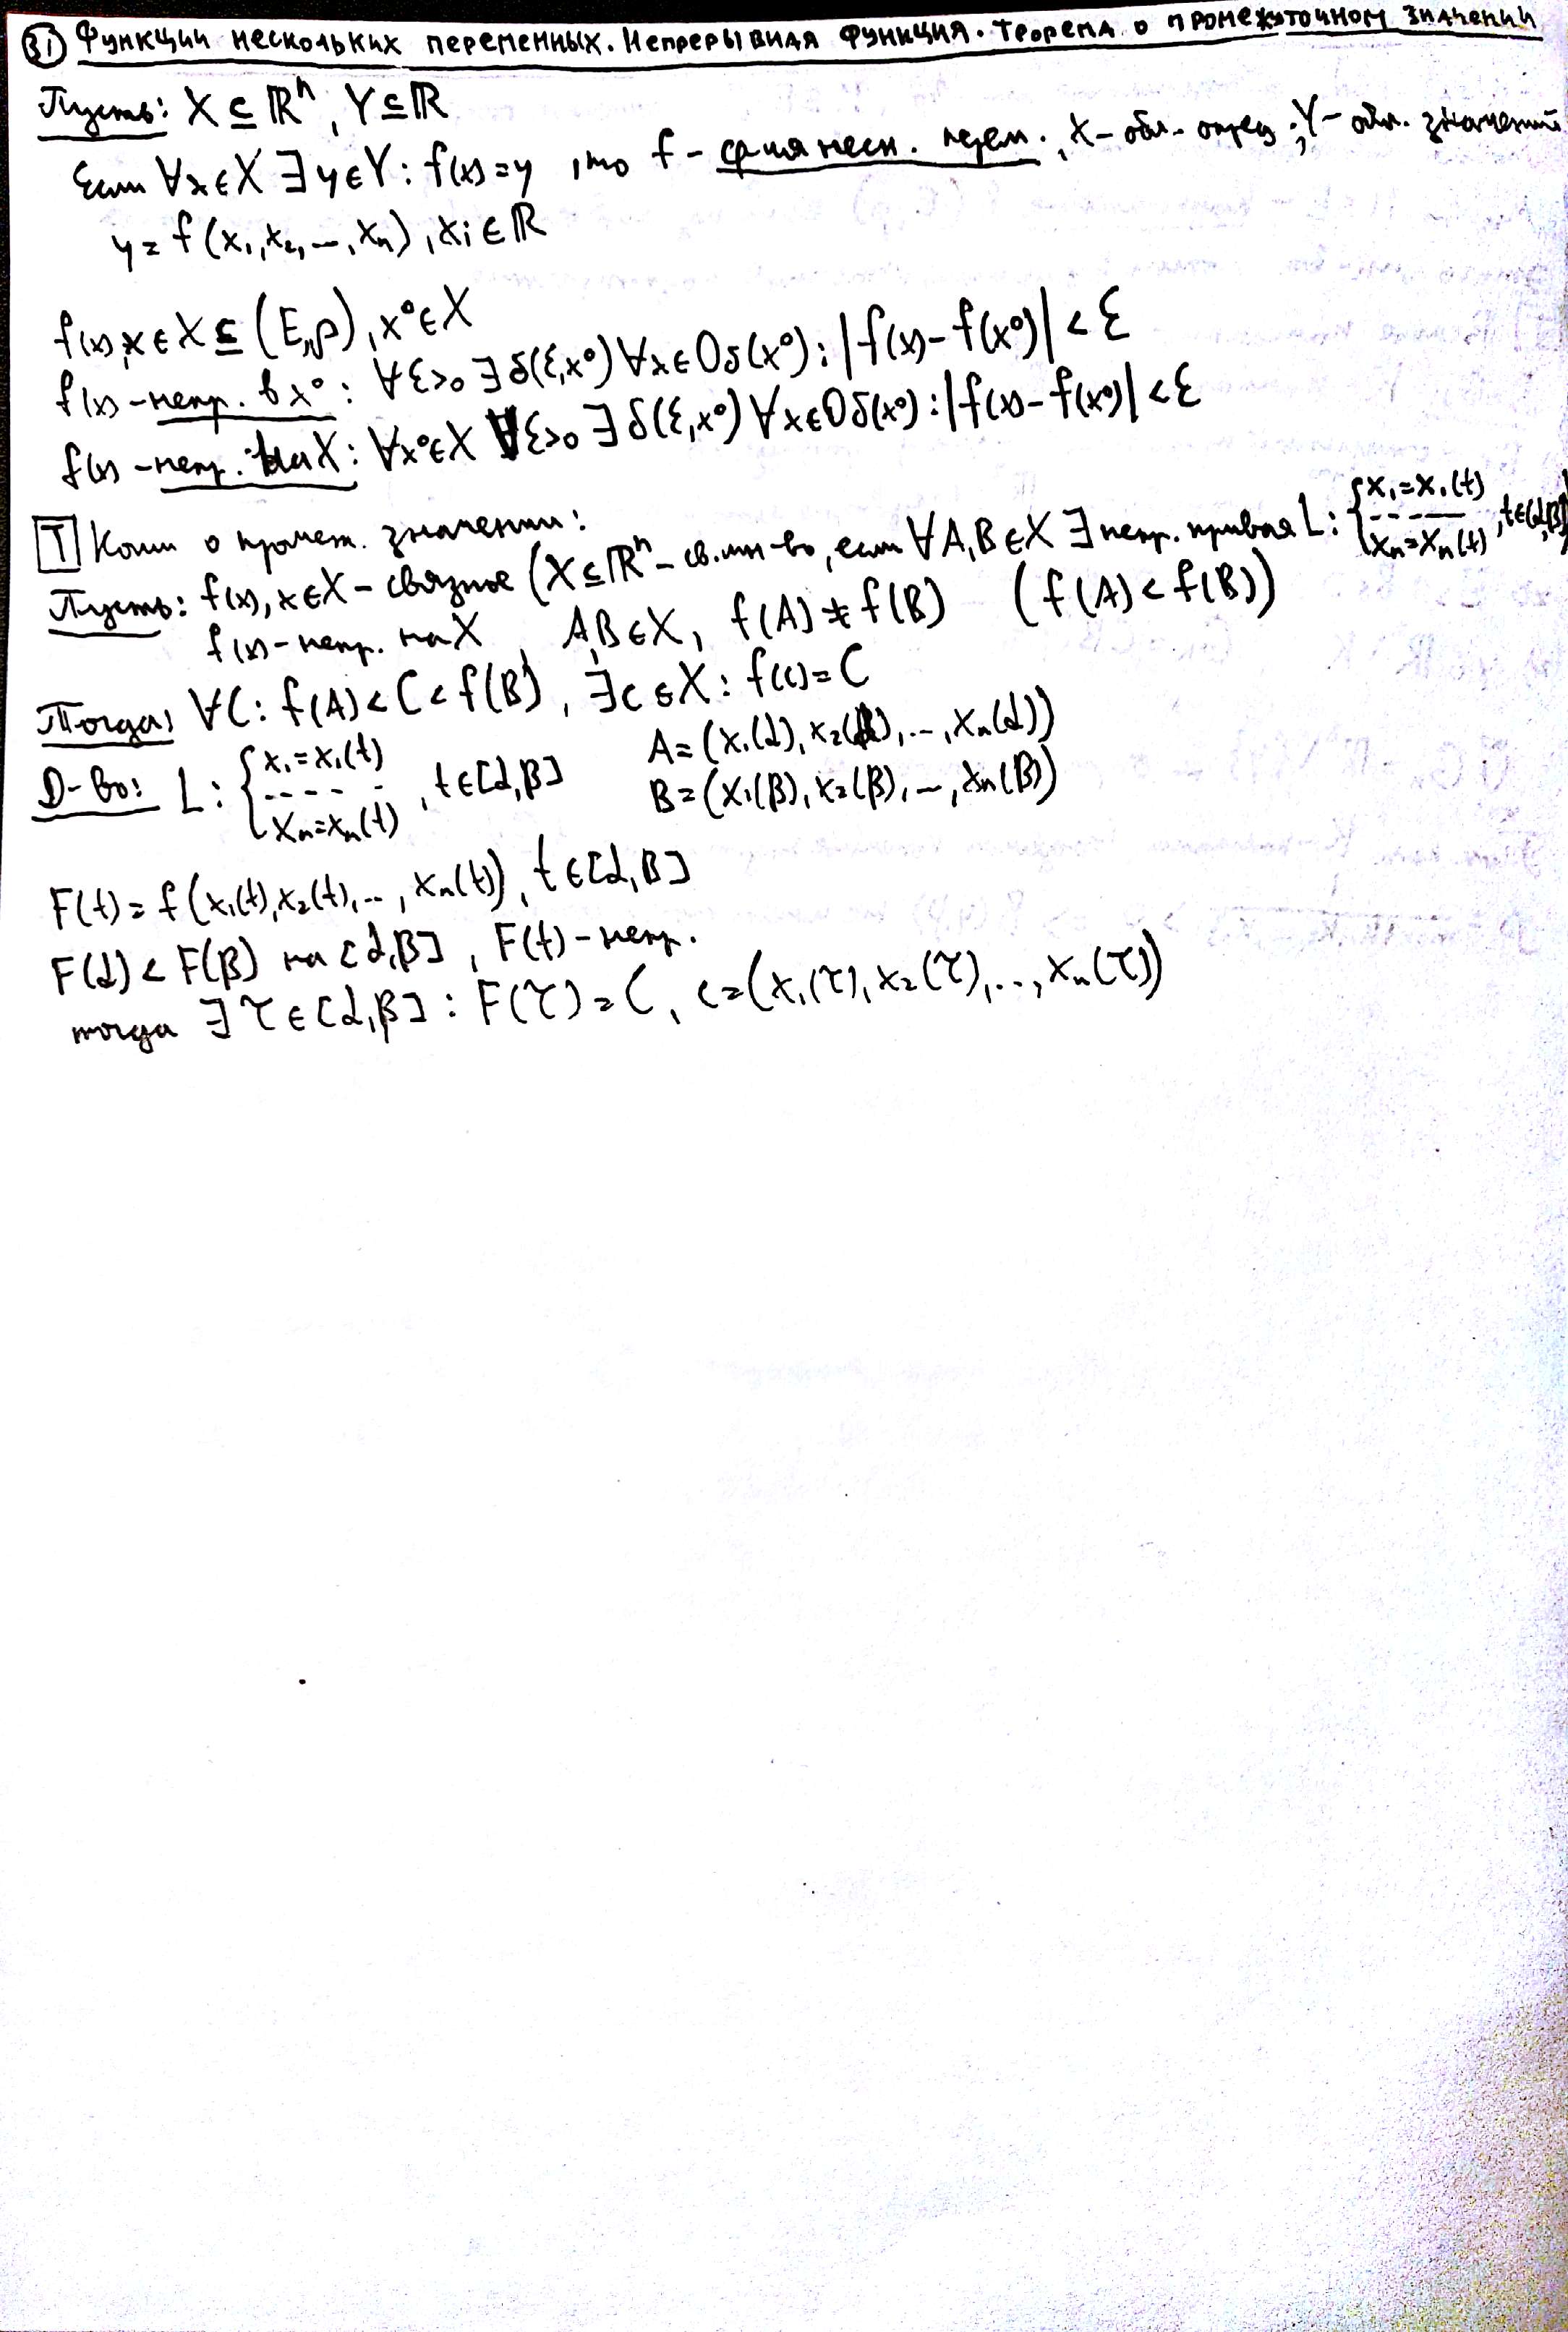 31 Функции нескольких переменных. Непрерывная функция. Теорема о промежуточном значении
Пусть: X ⊆ ℝⁿ, Y ⊆ ℝ
Если ∀x∈X ∃y∈Y: f(x)=y, то f – ф-ия неск. перем., X – обл. опред.; Y – обл. значений
y = f(x₁, x₂, ..., xₙ), xᵢ ∈ ℝ
f(x), x∈X ⊆ (E, ρ), x⁰∈X
f(x) – непр. в x⁰: ∀ε>0 ∃δ(ε,x⁰) ∀x∈Oδ(x⁰): |f(x)-f(x⁰)|<ε
f(x) – непр. на X: ∀x⁰∈X ∀ε>0 ∃δ(ε,x⁰) ∀x∈Oδ(x⁰): |f(x)-f(x⁰)|<ε
T Коши о промеж. значении:
Пусть: f(x), x∈X – связное (X⊆ℝⁿ – св. мн-во, если ∀A,B∈X ∃ непр. кривая L: {x₁=x₁(t) ----- xₙ=xₙ(t), t∈[α,β])
f(x) – непр. на X, A,B∈X, f(A)≠f(B) (f(A)<f(B))
Тогда: ∀C: f(A)<C<f(B), ∃c∈X: f(c)=C
Д-во: L: {x₁=x₁(t) ----- xₙ=xₙ(t), t∈[α,β] A=(x₁(α), x₂(α), ..., xₙ(α))
B=(x₁(β), x₂(β), ..., xₙ(β))
F(t)=f(x₁(t), x₂(t), ..., xₙ(t)), t∈[α,β]
F(α)<F(β) на [α,β], F(t) – непр.
тогда ∃τ∈[α,β]: F(τ)=C, c=(x₁(τ), x₂(τ), ..., xₙ(τ))